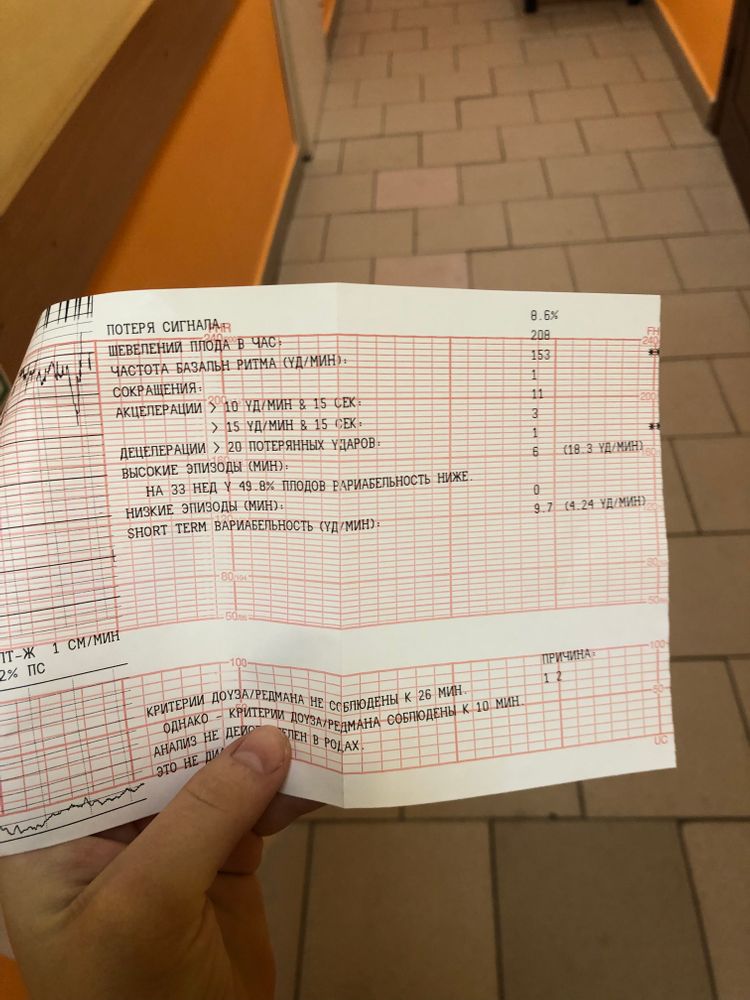 ПОТЕРЯ СИГНАЛА: 8.6%
ШЕВЕЛЕНИЙ ПЛОДА В ЧАС: 208
ЧАСТОТА БАЗАЛЬН РИТМА (УД/МИН): 153 **
СОКРАЩЕНИЯ: 1
АКЦЕЛЕРАЦИИ > 10 УД/МИН & 15 СЕК: 11
> 15 УД/МИН & 15 СЕК: 3
ДЕЦЕЛЕРАЦИИ > 20 ПОТЕРЯННЫХ УДАРОВ: 1 **
ВЫСОКИЕ ЭПИЗОДЫ (МИН): 6 (18.3 УД/МИН)
НА 33 НЕД У 49.8% ПЛОДОВ ВАРИАБЕЛЬНОСТЬ НИЖЕ.
НИЗКИЕ ЭПИЗОДЫ (МИН): 0
SHORT TERM ВАРИАБЕЛЬНОСТЬ (УД/МИН): 9.7 (4.24 УД/МИН)
240 240
200 200
160 160
80
50 50
1 СМ/МИН
2% ПС
100 100
50
КРИТЕРИИ ДОУЗА/РЕДМАНА НЕ СОБЛЮДЕНЫ К 26 МИН. ПРИЧИНА:
1 2
ОДНАКО - КРИТЕРИИ ДОУЗА/РЕДМАНА СОБЛЮДЕНЫ К 10 МИН.
АНАЛИЗ НЕ В РОДАХ.
ЭТО НЕ
UC